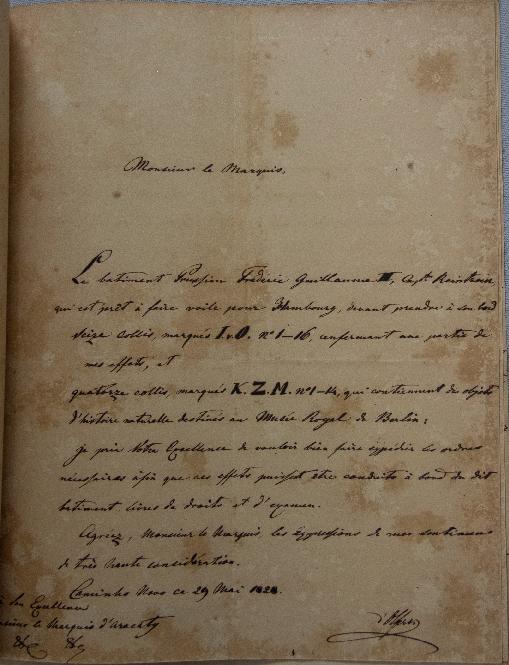 Monsieur le Marquis,
Le batiment Prussien Fréderic Guillaume III, Capt.
qui est prêt à faire voile pour Hambourg, devant prendre à son bord
seize Collis, marqués I.v.O. nº 1–16, renfermant une partie de
mes effets, et
quatorze collis, marqués K.Z.M. nº 1–14, qui contiennent des objets
d'histoire naturelle destinés au Musée Royal de Berlin;
je prie Votre Excellence de vouloir bien faire expédier les ordres
nécessaires afin que ces effets puissent être conduits à bord du dit
batiment libres de droits et d'examen.
Agréez, Monsieur le Marquis, les Expressions de mes sentimens
de très haute considération.
Caminho Novo ce 29 Mai 1828.
à Son Excellence
Monsieur le Marquis d'Aracaty
&c &c
d'Olfers